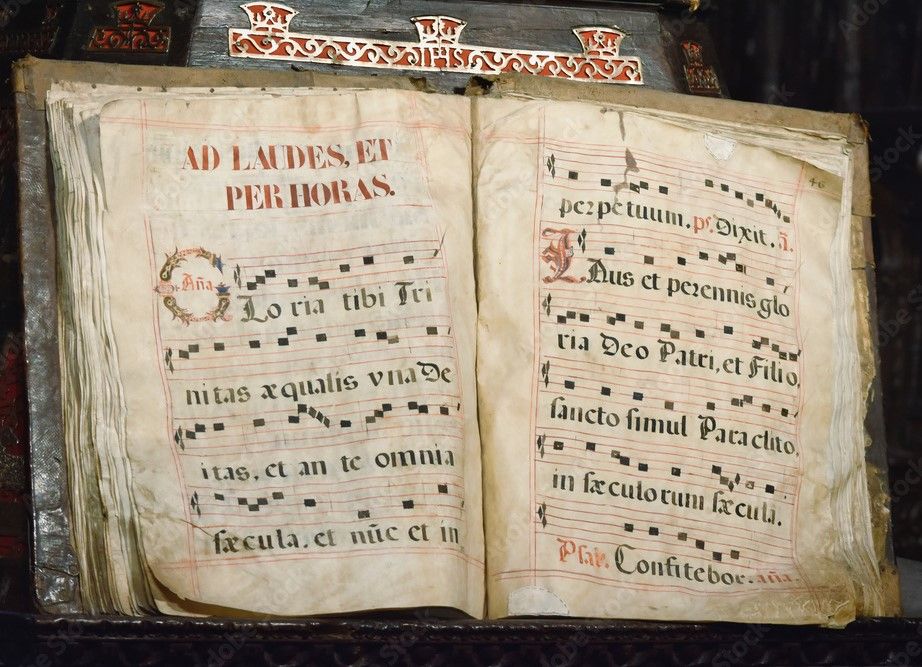 IHS
AD LAUDES, ET
PER HORAS.
Aña
GLo ria tibi Tri
nitas æqualis vna De
itas, et an te omnia
sæcula. et nũc et in
46
perpetuum. ps. Dixit. ñ.
LAus et perennis glo
ria Deo Patri, et Filio,
sancto simul Paraclito,
in sæculorum sæcula.
Psal. Confitebor. aña.